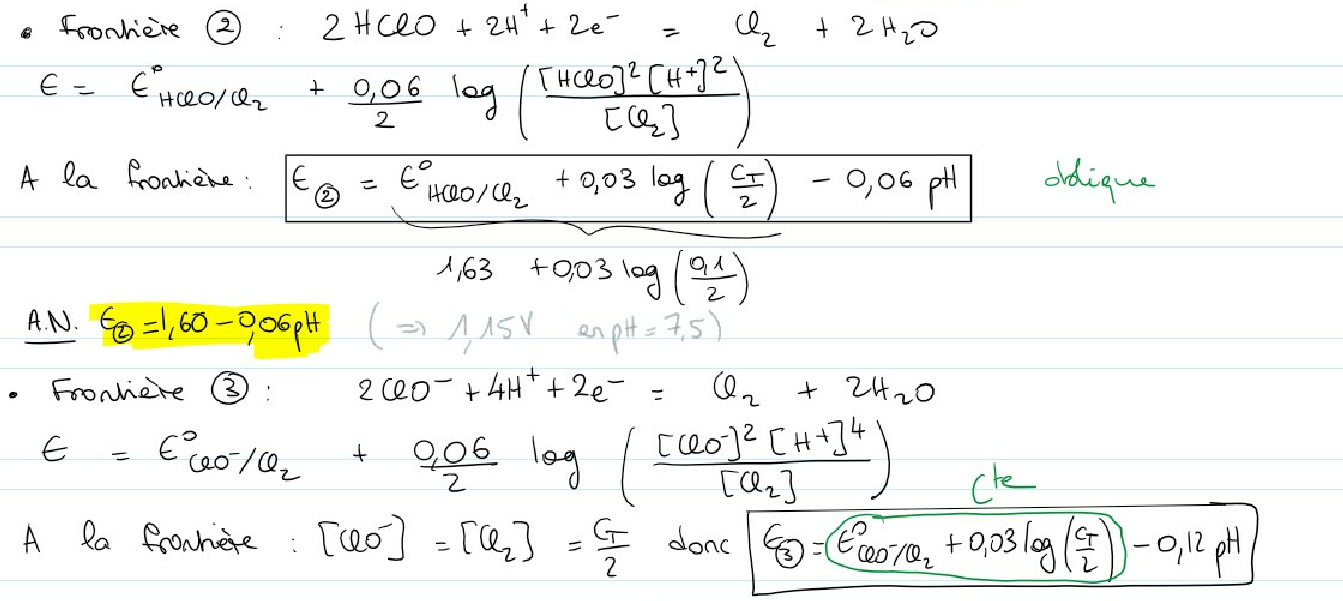 • Frontière ② : 2 HClO + 2H⁺ + 2e⁻ = Cl₂ + 2 H₂O
E = E°HClO/Cl₂ + 0,06/2 log ([HClO]² [H⁺]² / [Cl₂])
A la frontière : E② = E°HClO/Cl₂ + 0,03 log (CT/2) − 0,06 pH oblique
1,63 + 0,03 log (0,1/2)
A.N. E② = 1,60 − 0,06 pH (⇒ 1,15V en pH = 7,5)
• Frontière ③ : 2 ClO⁻ + 4H⁺ + 2e⁻ = Cl₂ + 2H₂O
E = E°ClO⁻/Cl₂ + 0,06/2 log ([ClO⁻]² [H⁺]⁴ / [Cl₂])
Cte
A la frontière : [ClO⁻] = [Cl₂] = CT/2 donc E③ = E°ClO⁻/Cl₂ + 0,03 log (CT/2) − 0,12 pH